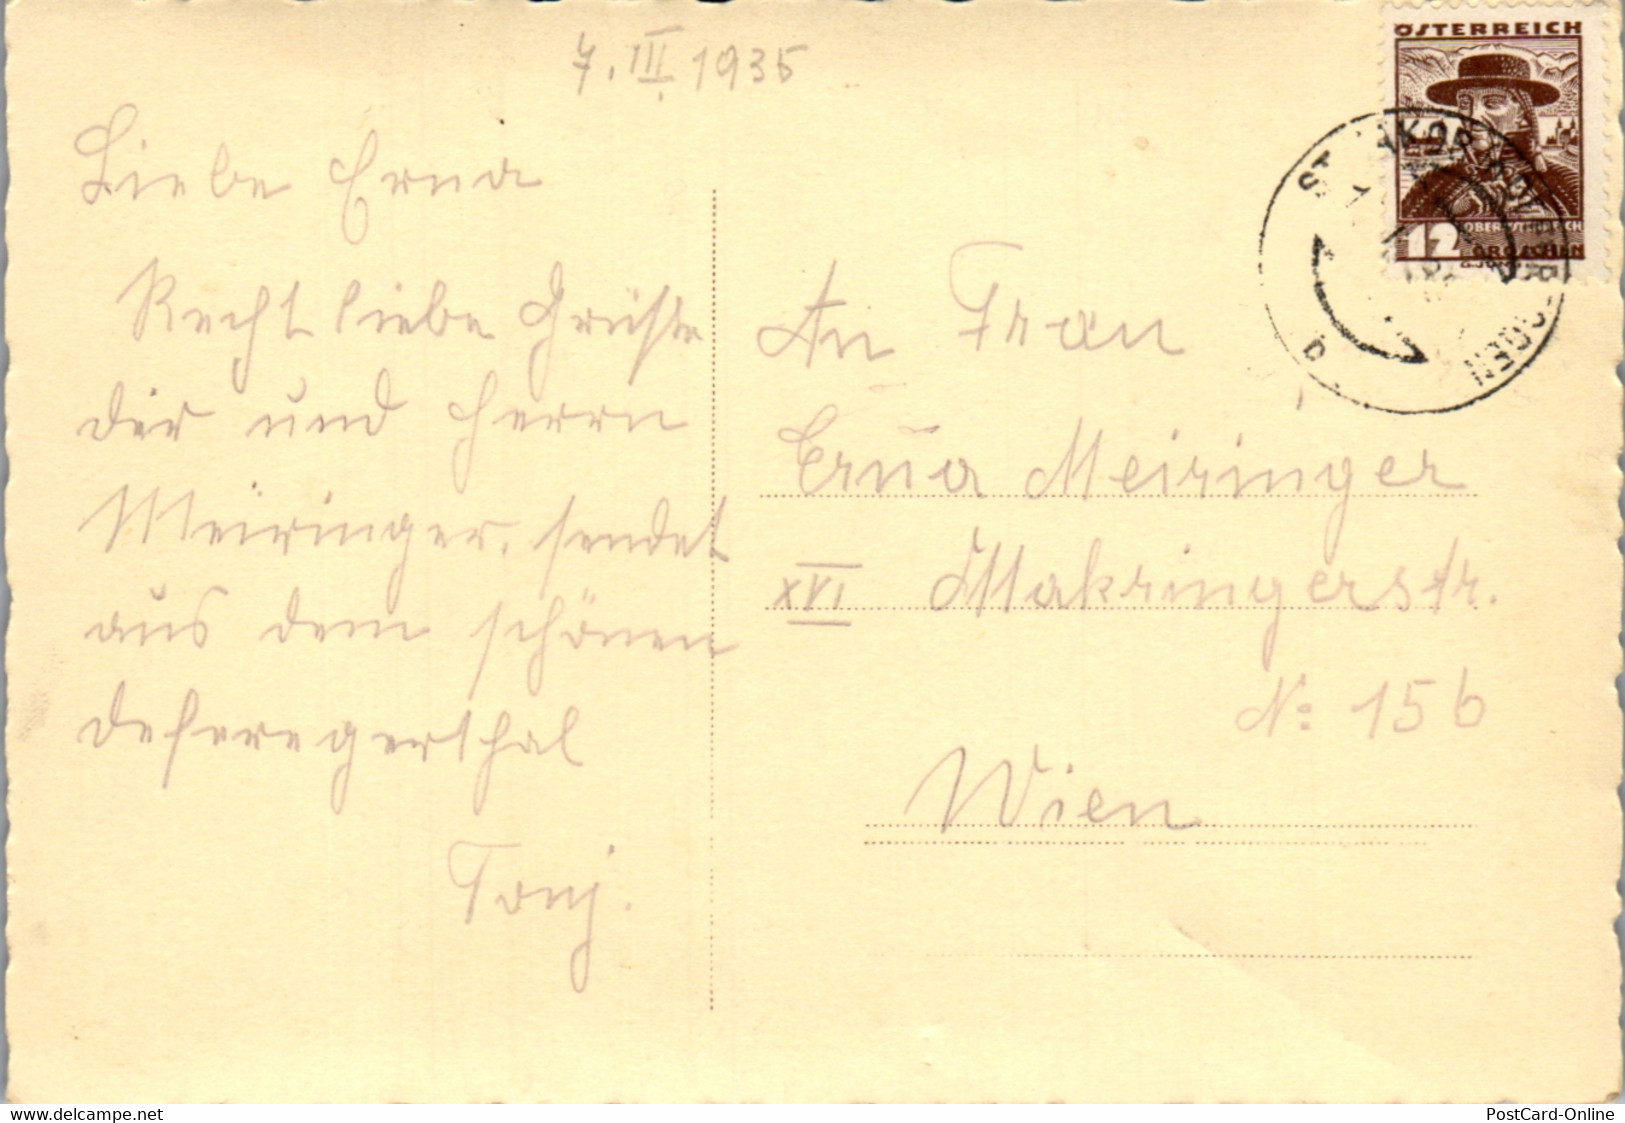 7. III. 1935
Liebe Erna
Recht liebe Grüsse
dir und Herrn
Meiringer. sendet
aus dem schönen
defereggerthal
Tonj.
ÖSTERREICH
12
OBERÖSTERREICH
GROSCHEN
An Frau
Erna Meiringer
XVI Makringerstr.
No: 15b
Wien
delcampe.net
PostCard-Online